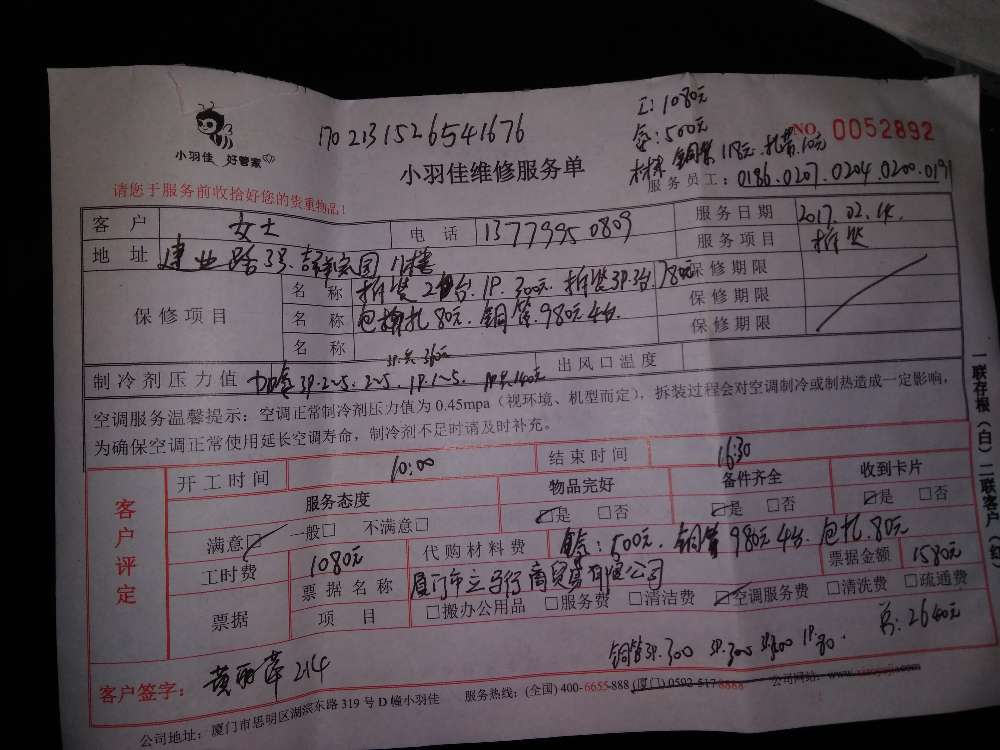 工:1080元
170213152654 1676
氟:500元
NO 0052892
小羽佳 好管家
小羽佳维修服务单
118元.扎带.10元
请您于服务前收拾好您的贵重物品!
服务员工:0186.0207.0204.0200.0191
客户 女士 电话 13779950809 服务日期 2017.02.14.
地址 建业路33号 11楼 服务项目 拆装
保修项目 名称 拆装2台.1P.300元.拆装3P.3台.780元 保修期限
名称 包扎80元.铜管.980元4台. 保修期限
名称 保修期限
3P.共360元
制冷剂压力值 加氟3P.2~5.2~5.1P.1~5. 140元 出风口温度
空调服务温馨提示:空调正常制冷剂压力值为0.45mpa(视环境、机型而定),拆装过程会对空调制冷或制热造成一定影响,
为确保空调正常使用延长空调寿命,制冷剂不足时请及时补充。
一联存根(白)二联客户(红)
客户评定
开工时间 10:00 结束时间 16:30
服务态度 物品完好 备件齐全 收到卡片
满意☑ 一般□ 不满意□ ☑是 □否 ☑是 □否 ☑是 □否
工时费 1080元 代购材料费 氟:500元.铜管980元4台.包扎.80元
票据 票据名称 厦门市立 商贸有限公司 票据金额 1580元
项目 □搬办公用品 □服务费 □清洁费 ☑空调服务费 □清洗费 □疏通费
铜管3P.300 3P.300 3P.300 1P.80. 总:2640元
客户签字: 214
公司地址:厦门市思明区湖滨东路319号D幢小羽佳 服务热线:(全国)400-6655-888 (厦门)0592-517 8888 公司网站:www.xiaoyujia.com